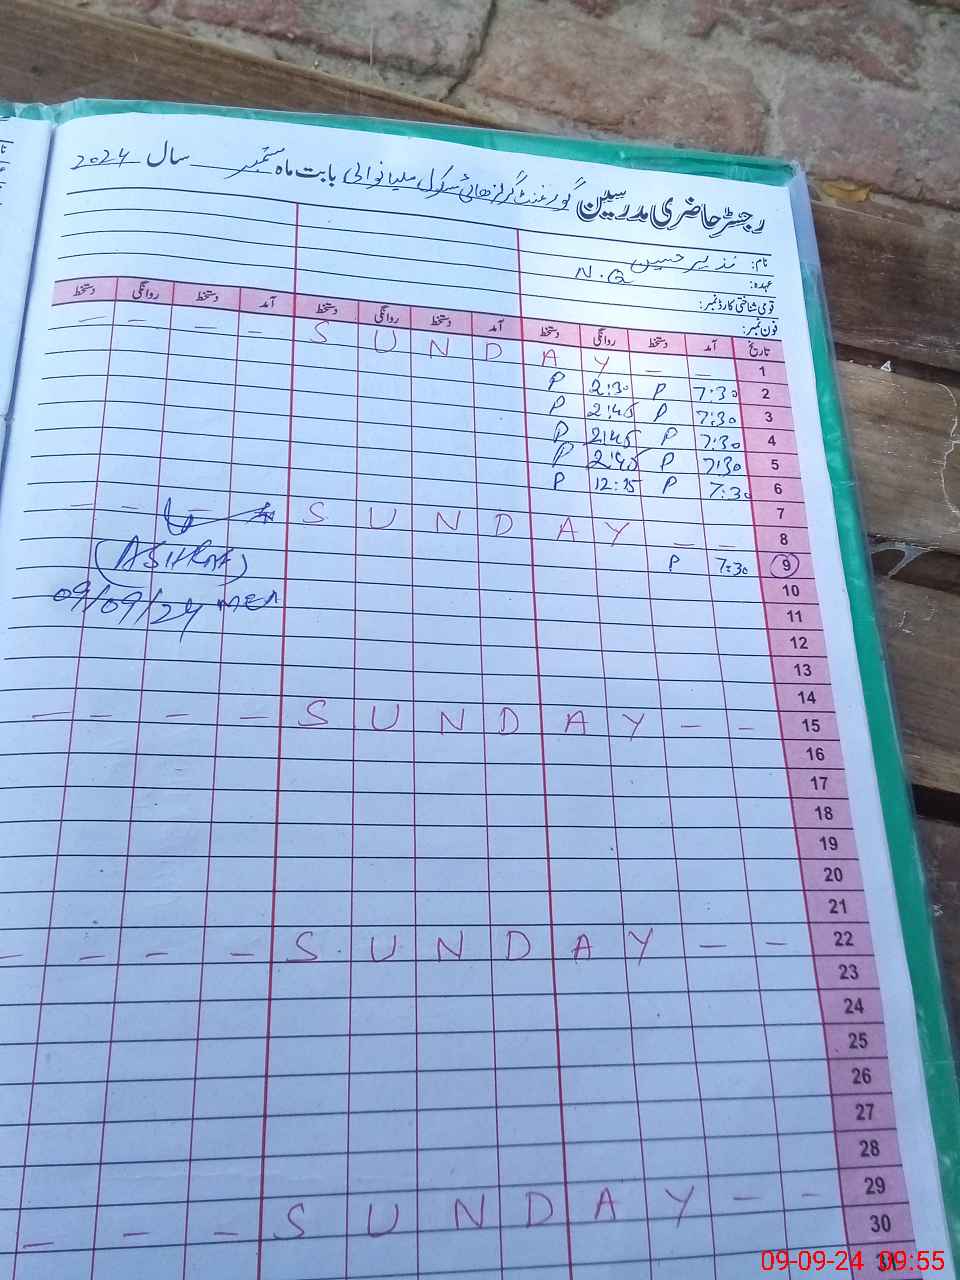 رجسٹر حاضری مدرسین گورنمنٹ گرلز ھائی سکول میانوالی بابت ماہ ستمبر سال 2024
نام: نذیر حسین
عہدہ: N.Q
قومی شناختی کارڈ نمبر:
فون نمبر:
تاریخ آمد دستخط روانگی دستخط آمد دستخط روانگی دستخط آمد دستخط روانگی دستخط
1 - - S U N D A Y - - - -
2 7:30 P 2:30 P
3 7:30 P 2:45 P
4 7:30 P 2:45 P
5 7:30 P 2:45 P
6 7:30 P 12:15 P
7
8 - - S U N D A Y - - - -
9 7:30 P
(ASHRAF)
10
09/09/24 MEA
11
12
13
14
15 - - - - S U N D A Y - -
16
17
18
19
20
21
22 - - - - S U N D A Y - -
23
24
25
26
27
28
29 - - - S U N D A Y - -
30
31
09-09-24 09:55